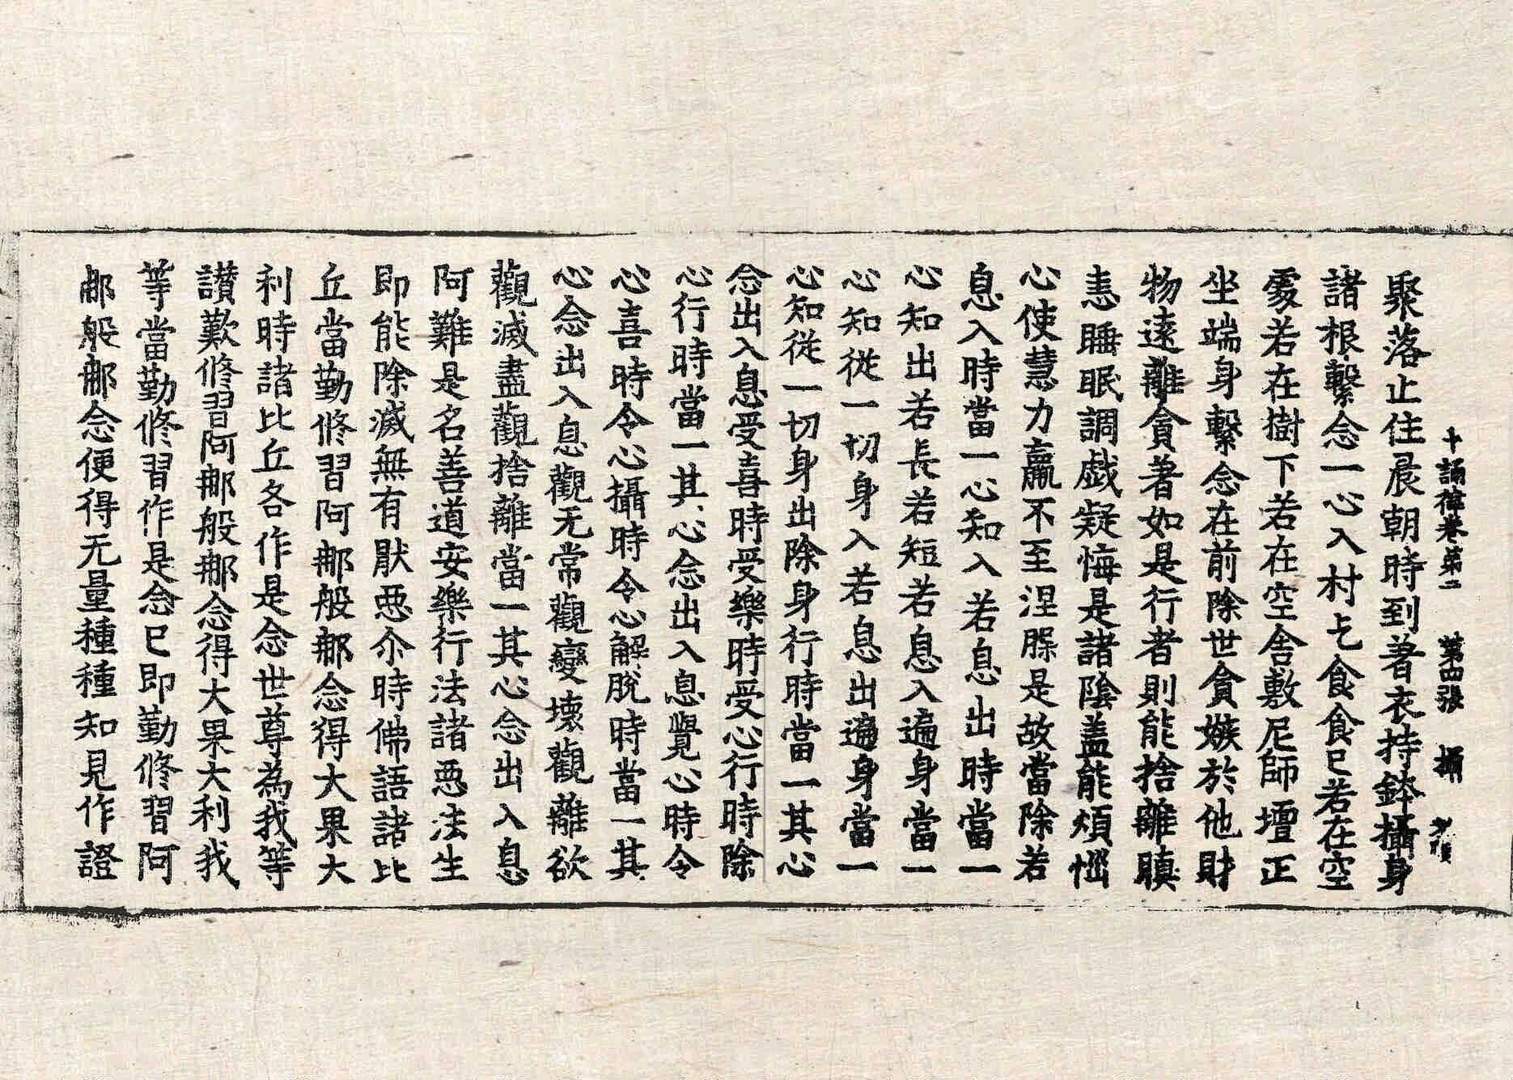 十誦律卷第二 第四張 攝
聚落止住晨朝時到著衣持鉢攝身
諸根繫念一心入村乞食食已若在空
處若在樹下若在空舍敷尼師壇正
坐端身繫念在前除世貪嫉於他財
物遠離貪著如是行者則能捨離瞋
恚睡眠調戲疑悔是諸陰蓋能煩惱
心使慧力羸不至涅槃是故當除若
息入時當一心知入若息出時當一
心知出若長若短若息入遍身當一
心知從一切身入若息出遍身當一
心知從一切身出除身行時當一其心
念出入息受喜時受樂時受心行時除
心行時當一其心念出入息覺心時令
心喜時令心攝時令心解脫時當一其
心念出入息觀无常觀變壞觀離欲
觀滅盡觀捨離當一其心念出入息
阿難是名善道安樂行法諸惡法生
即能除滅無有厭惡尒時佛語諸比
丘當勤修習阿那般那念得大果大
利時諸比丘各作是念世尊為我等
讃歎修習阿那般那念得大果大利我
等當勤修習作是念已即勤修習阿
那般那念便得无量種種知見作證